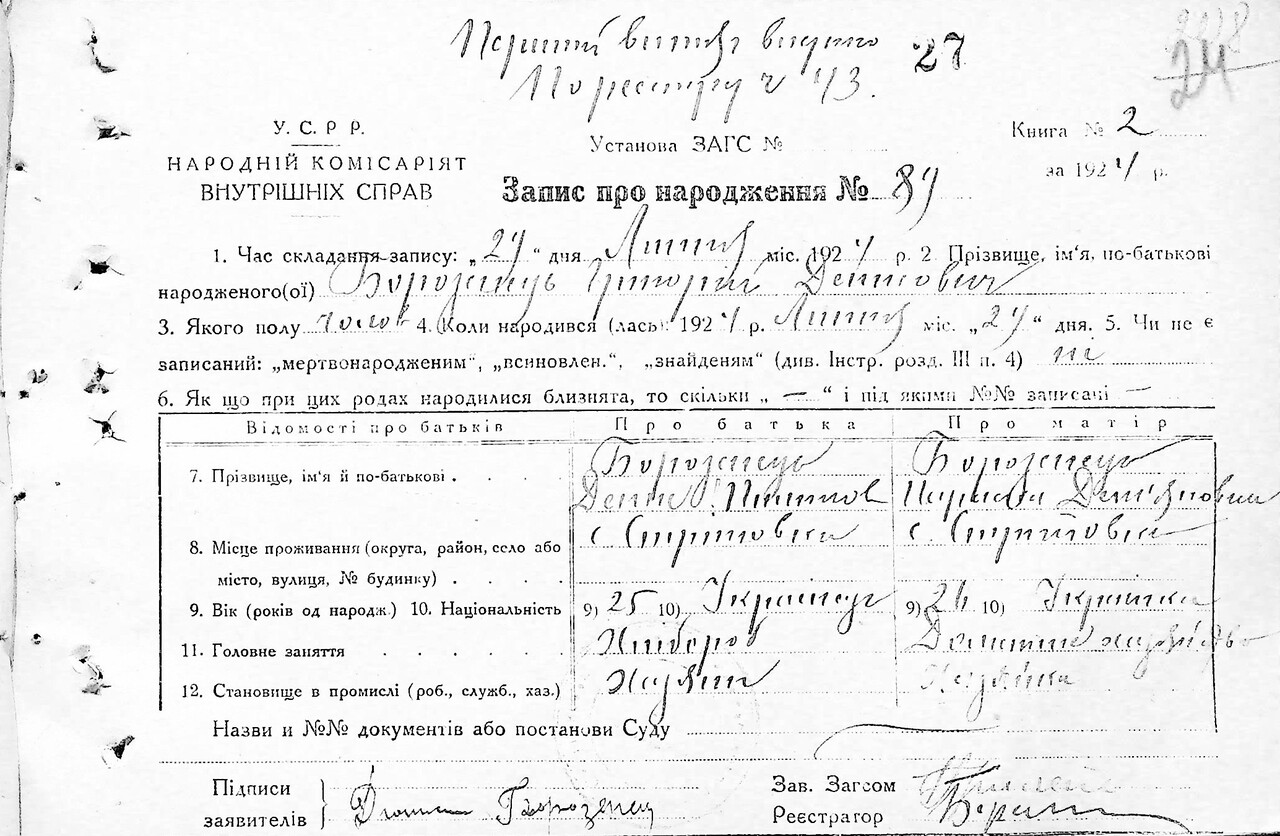 Перший витяг видано
По реєстру ч 43.
27
24
У. С. Р Р.
НАРОДНІЙ КОМІСАРІЯТ
ВНУТРІШНІХ СПРАВ
Установа ЗАГС №
Книга № 2
за 1924 р.
Запис про народження № 89
1. Час складання запису: „29" дня Липня міс. 1924 р. 2. Прізвище, ім'я, по-батькові
народженого(ої) Бороженець Григорій Денисович
3. Якого полу чолов 4. Коли народився (лась): 1924 р. Липня міс. „29" дня. 5. Чи не є
записаний: „мертвонародженим", „всиновлен.", „знайденям" (див. Інстр. розд. III п. 4) ні
6. Як що при цих родах народилися близнята, то скільки „ — " і під якими №№ записані —
Відомості про батьків Про батька Про матір
7. Прізвище, ім'я й по-батькові . . . . Бороженець Бороженець
Денис Пилипов
8. Місце проживання (округа, район, село або с с.
місто, вулиця, № будинку) . . . .
9. Вік (років од народж.) 10. Національність 9) 25 10) Українець 9) 10) Українка
11. Головне заняття . . . . . Хлібороб Домашнє хазяйство
12. Становище в промислі (роб., служб., хаз.) Хазяїн Хазяйка
Назви и №№ документів або постанови Суду
Підписи
заявителів
Бороженец
Зав. Загсом
Реєстратор